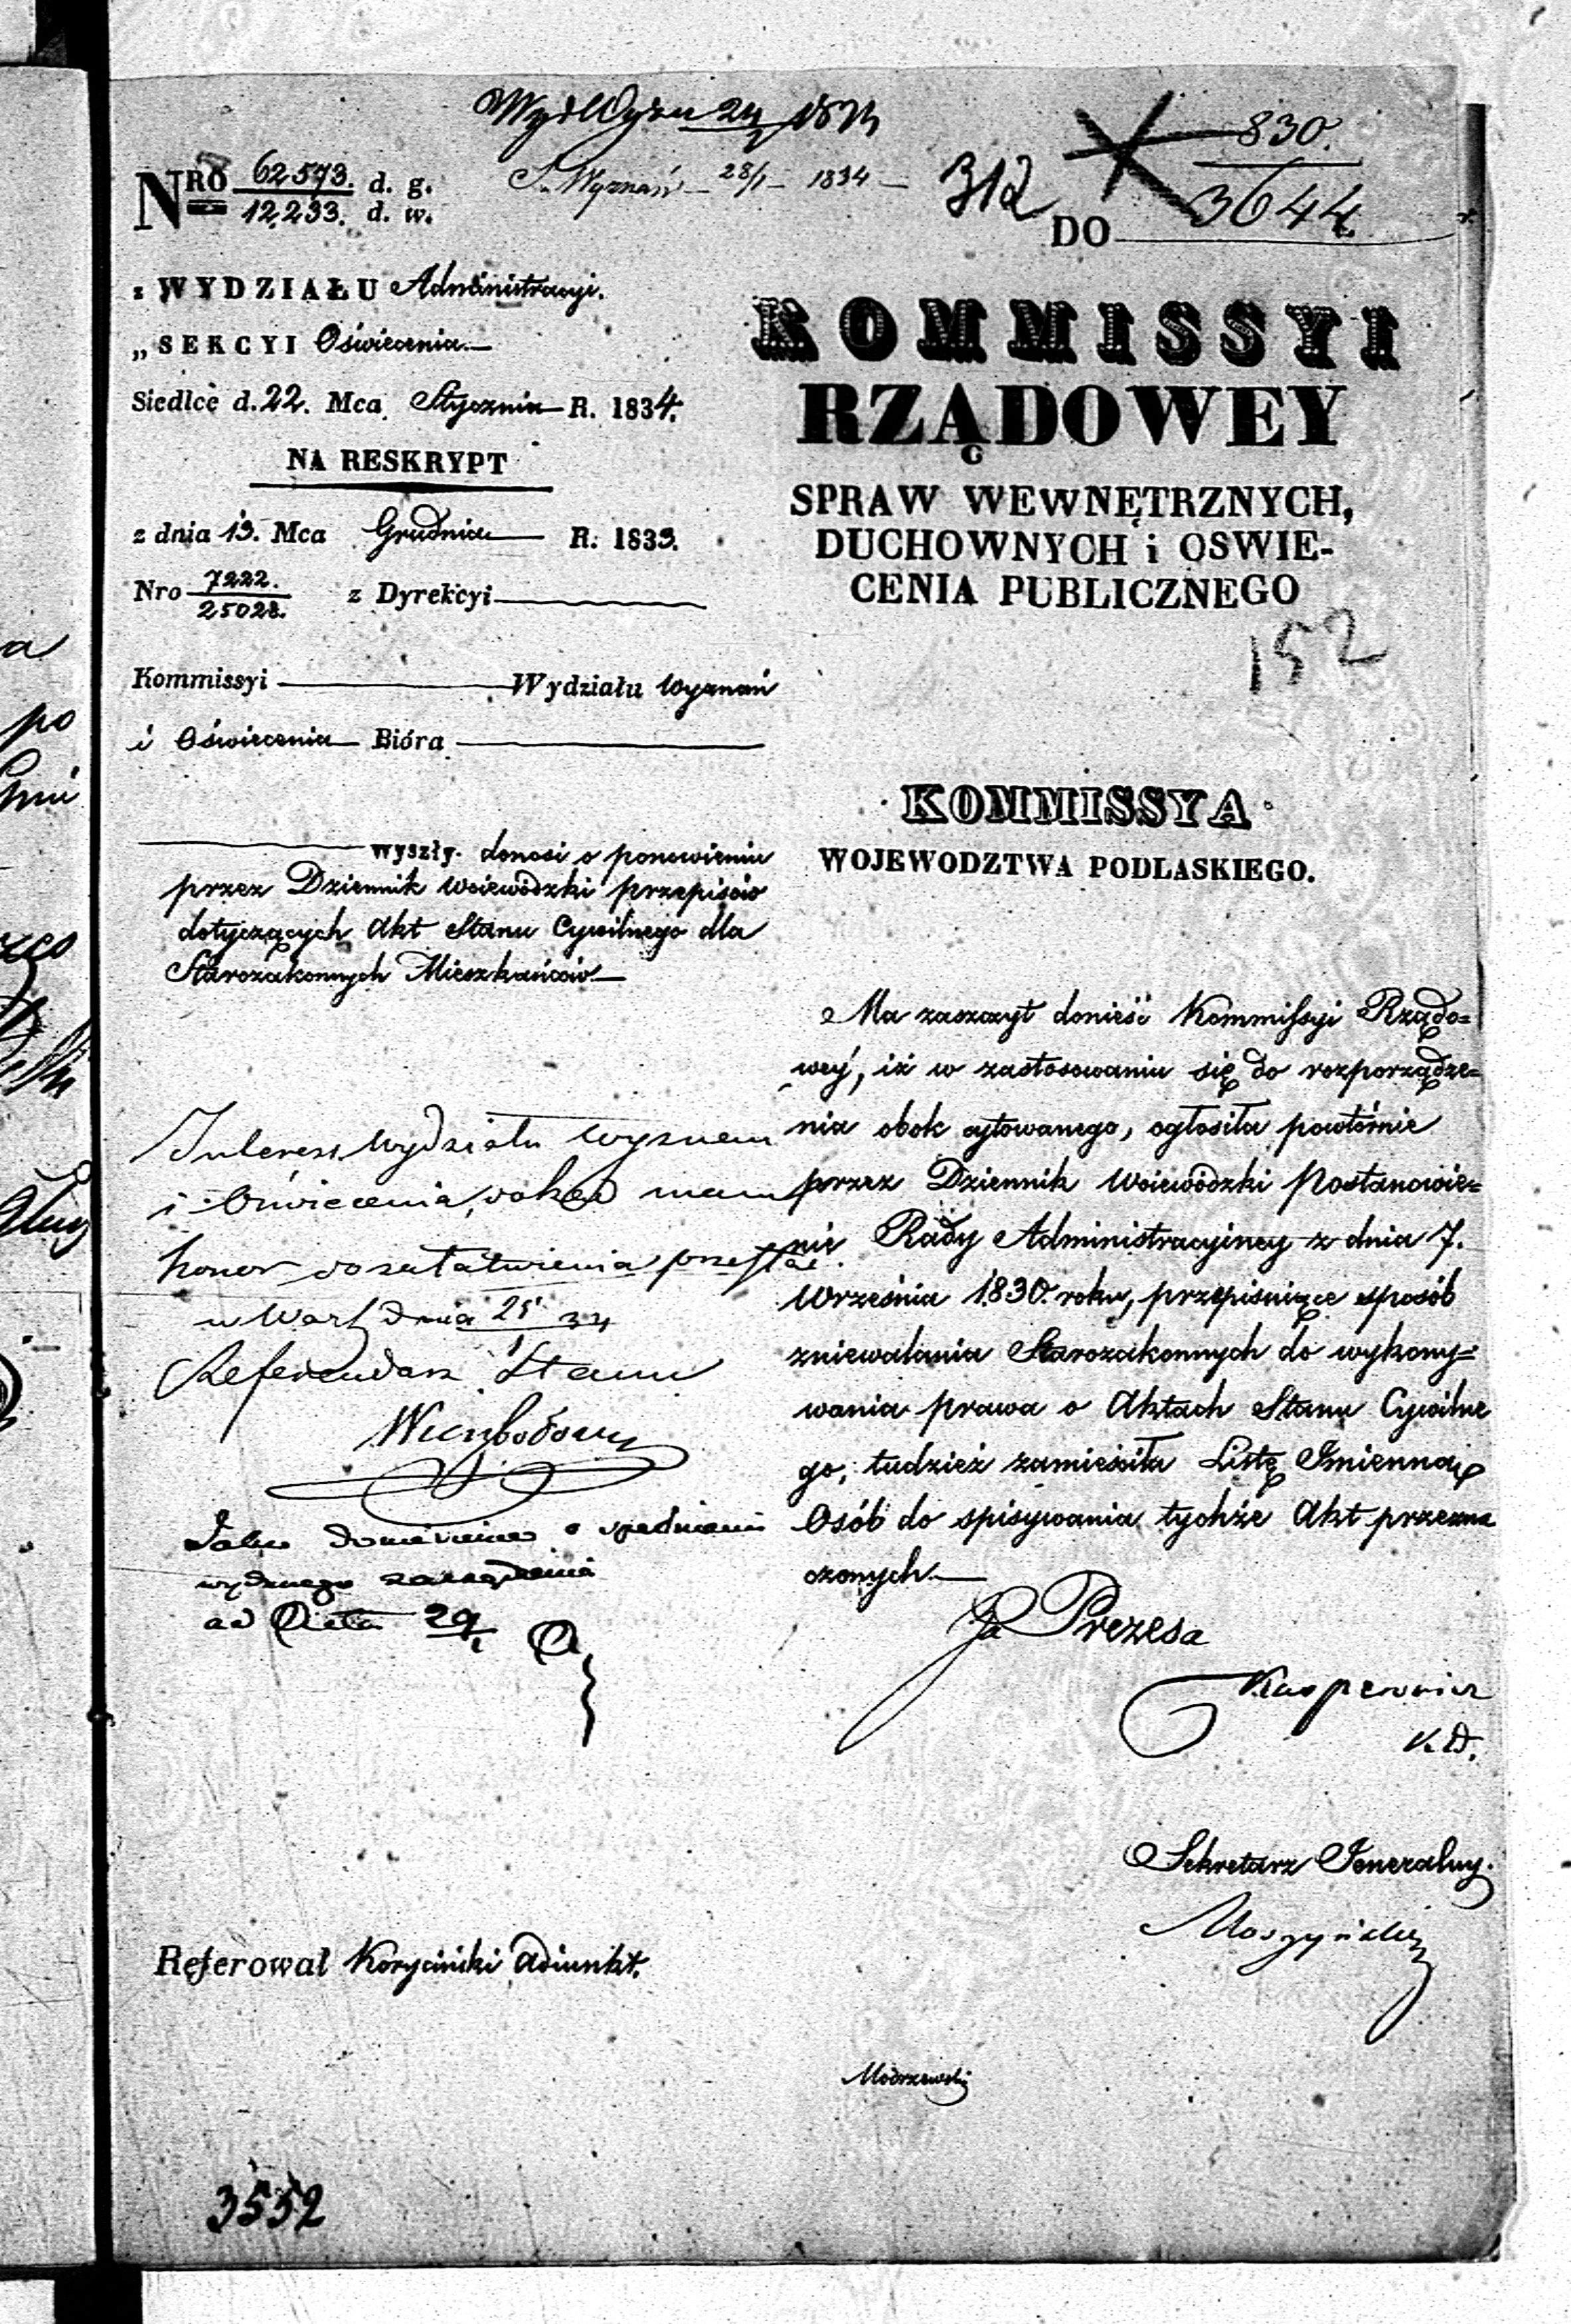 24 1834
Wyznań 28/1 1834
830.
312
3644
NRO 62573. d. g.
12,233. d. w.
DO
z WYDZIAŁU Administracyi.
„ SEKCYI Oświecenia
Siedlce d. 22. Mca Stycznia R. 1834.
NA RESKRYPT
z dnia 13. Mca Grudnia R. 1833.
Nro 7222. z Dyrekcyi
25028.
Kommissyi Wydziału Wyznań
i Oświecenia Bióra
wyszły. donosi o ponowieniu
przez Dziennik Woiewódzki przepisów
dotyczących Akt Stanu Cywilnego dla
Starozakonnych Mieszkańców
KOMMISSYI
RZĄDOWEY
SPRAW WEWNĘTRZNYCH,
DUCHOWNYCH i OSWIE-
CENIA PUBLICZNEGO
152
KOMMISSYA
WOJEWODZTWA PODLASKIEGO.
Ma zaszczyt donieść Kommissyi Rządo=
wey, iż w zastosowaniu się do rozporządze=
nia obok cytowanego, ogłosiła powtórnie
przez Dziennik Woiewódzki Postanowie=
nie Rady Administracyiney z dnia 7.
Września 1830. roku, przepisuiące sposób
zniewalania Starozakonnych do wykony=
wania prawa o Aktach Stanu Cywilne
go, tudzież zamieściła Listę Imienną
Osób do spisywania tychże Akt przezna
czonych.
Za Prezesa
Kasperowicz
K. W.
Sekretarz Jeneralny.
Moszyński
Interes Wydziału Wyznań
i Oświecenia, dokąd mam
honor do załatwienia przesłać.
w Warsz dnia 25 34
1
Referendarz Stanu
Jako doniesienie o spełnieniu
wydanego zarządzenia
ad Acta 29/1
Referował Koryciński Adiunkt.
Modrzewski
3552